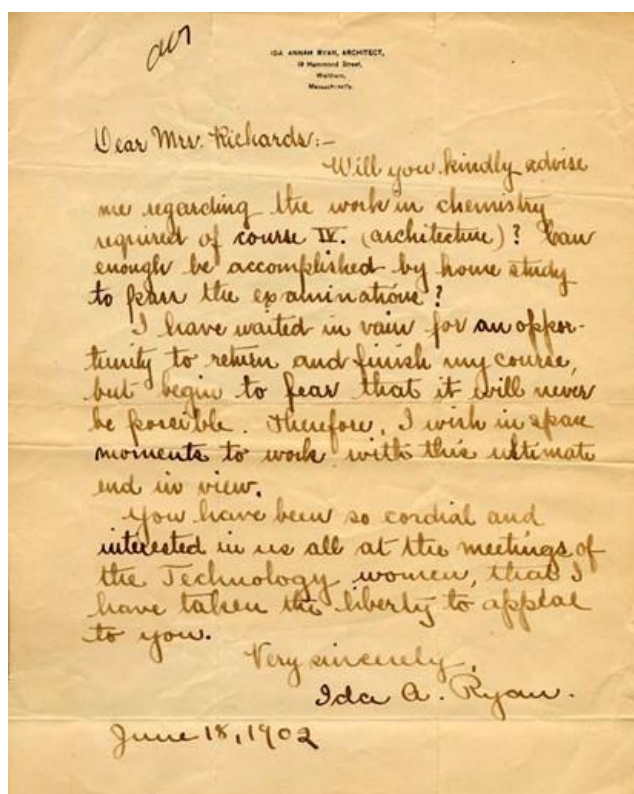 IDA ANNAH RYAN, ARCHITECT,
19 Hammond Street,
Waltham,
Massachusetts.
Dear Mrs. Richards:-
Will you kindly advise
me regarding the work in chemistry
required of course IV. (architecture)? Can
enough be accomplished by home study
to pass the examinations?
I have waited in vain for an oppor-
tunity to return and finish my course,
but begin to fear that it will never
be possible. Therefore, I wish in spare
moments to work with this ultimate
end in view.
You have been so cordial and
interested in us all at the meetings of
the Technology women, that I
have taken the liberty to appeal
to you.
Very sincerely,
Ida A. Ryan.
June 18, 1902